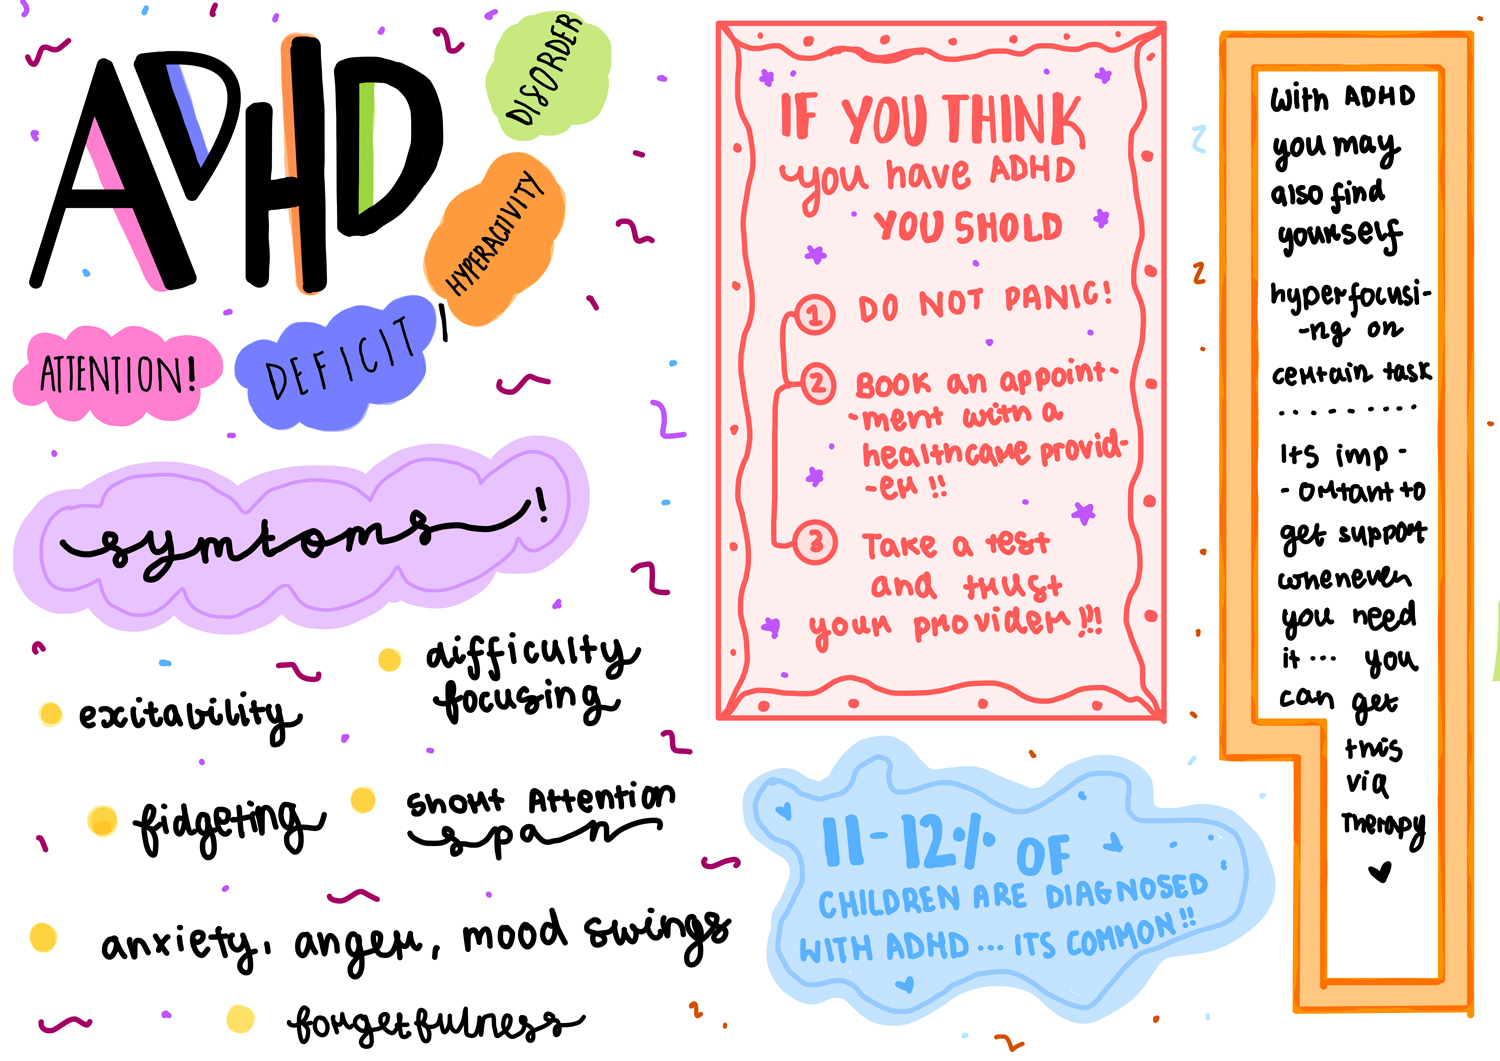 ADHD
DISORDER
HYPERACTIVITY
ATTENTION!
DEFICIT /
symtoms !
difficulty
focusing
exitability
fidgeting
short Attention
span
anxiety, anger, mood swings
forgetfulness
IF YOU THINK
you have ADHD
YOU SHOLD
1 DO NOT PANIC!
2 BOOK an appoint-
-ment with a
healthcare provid-
-er !!
3 Take a test
and trust
your provider !!!
11-12% OF
CHILDREN ARE DIAGNOSED
WITH ADHD... ITS COMMON!!
With ADHD
you may
also find
yourself
hyperfocusi-
-ng on
certain task
.........
Its imp-
-ortant to
get support
whenever
you need
it... you
can get
this
via
Therapy